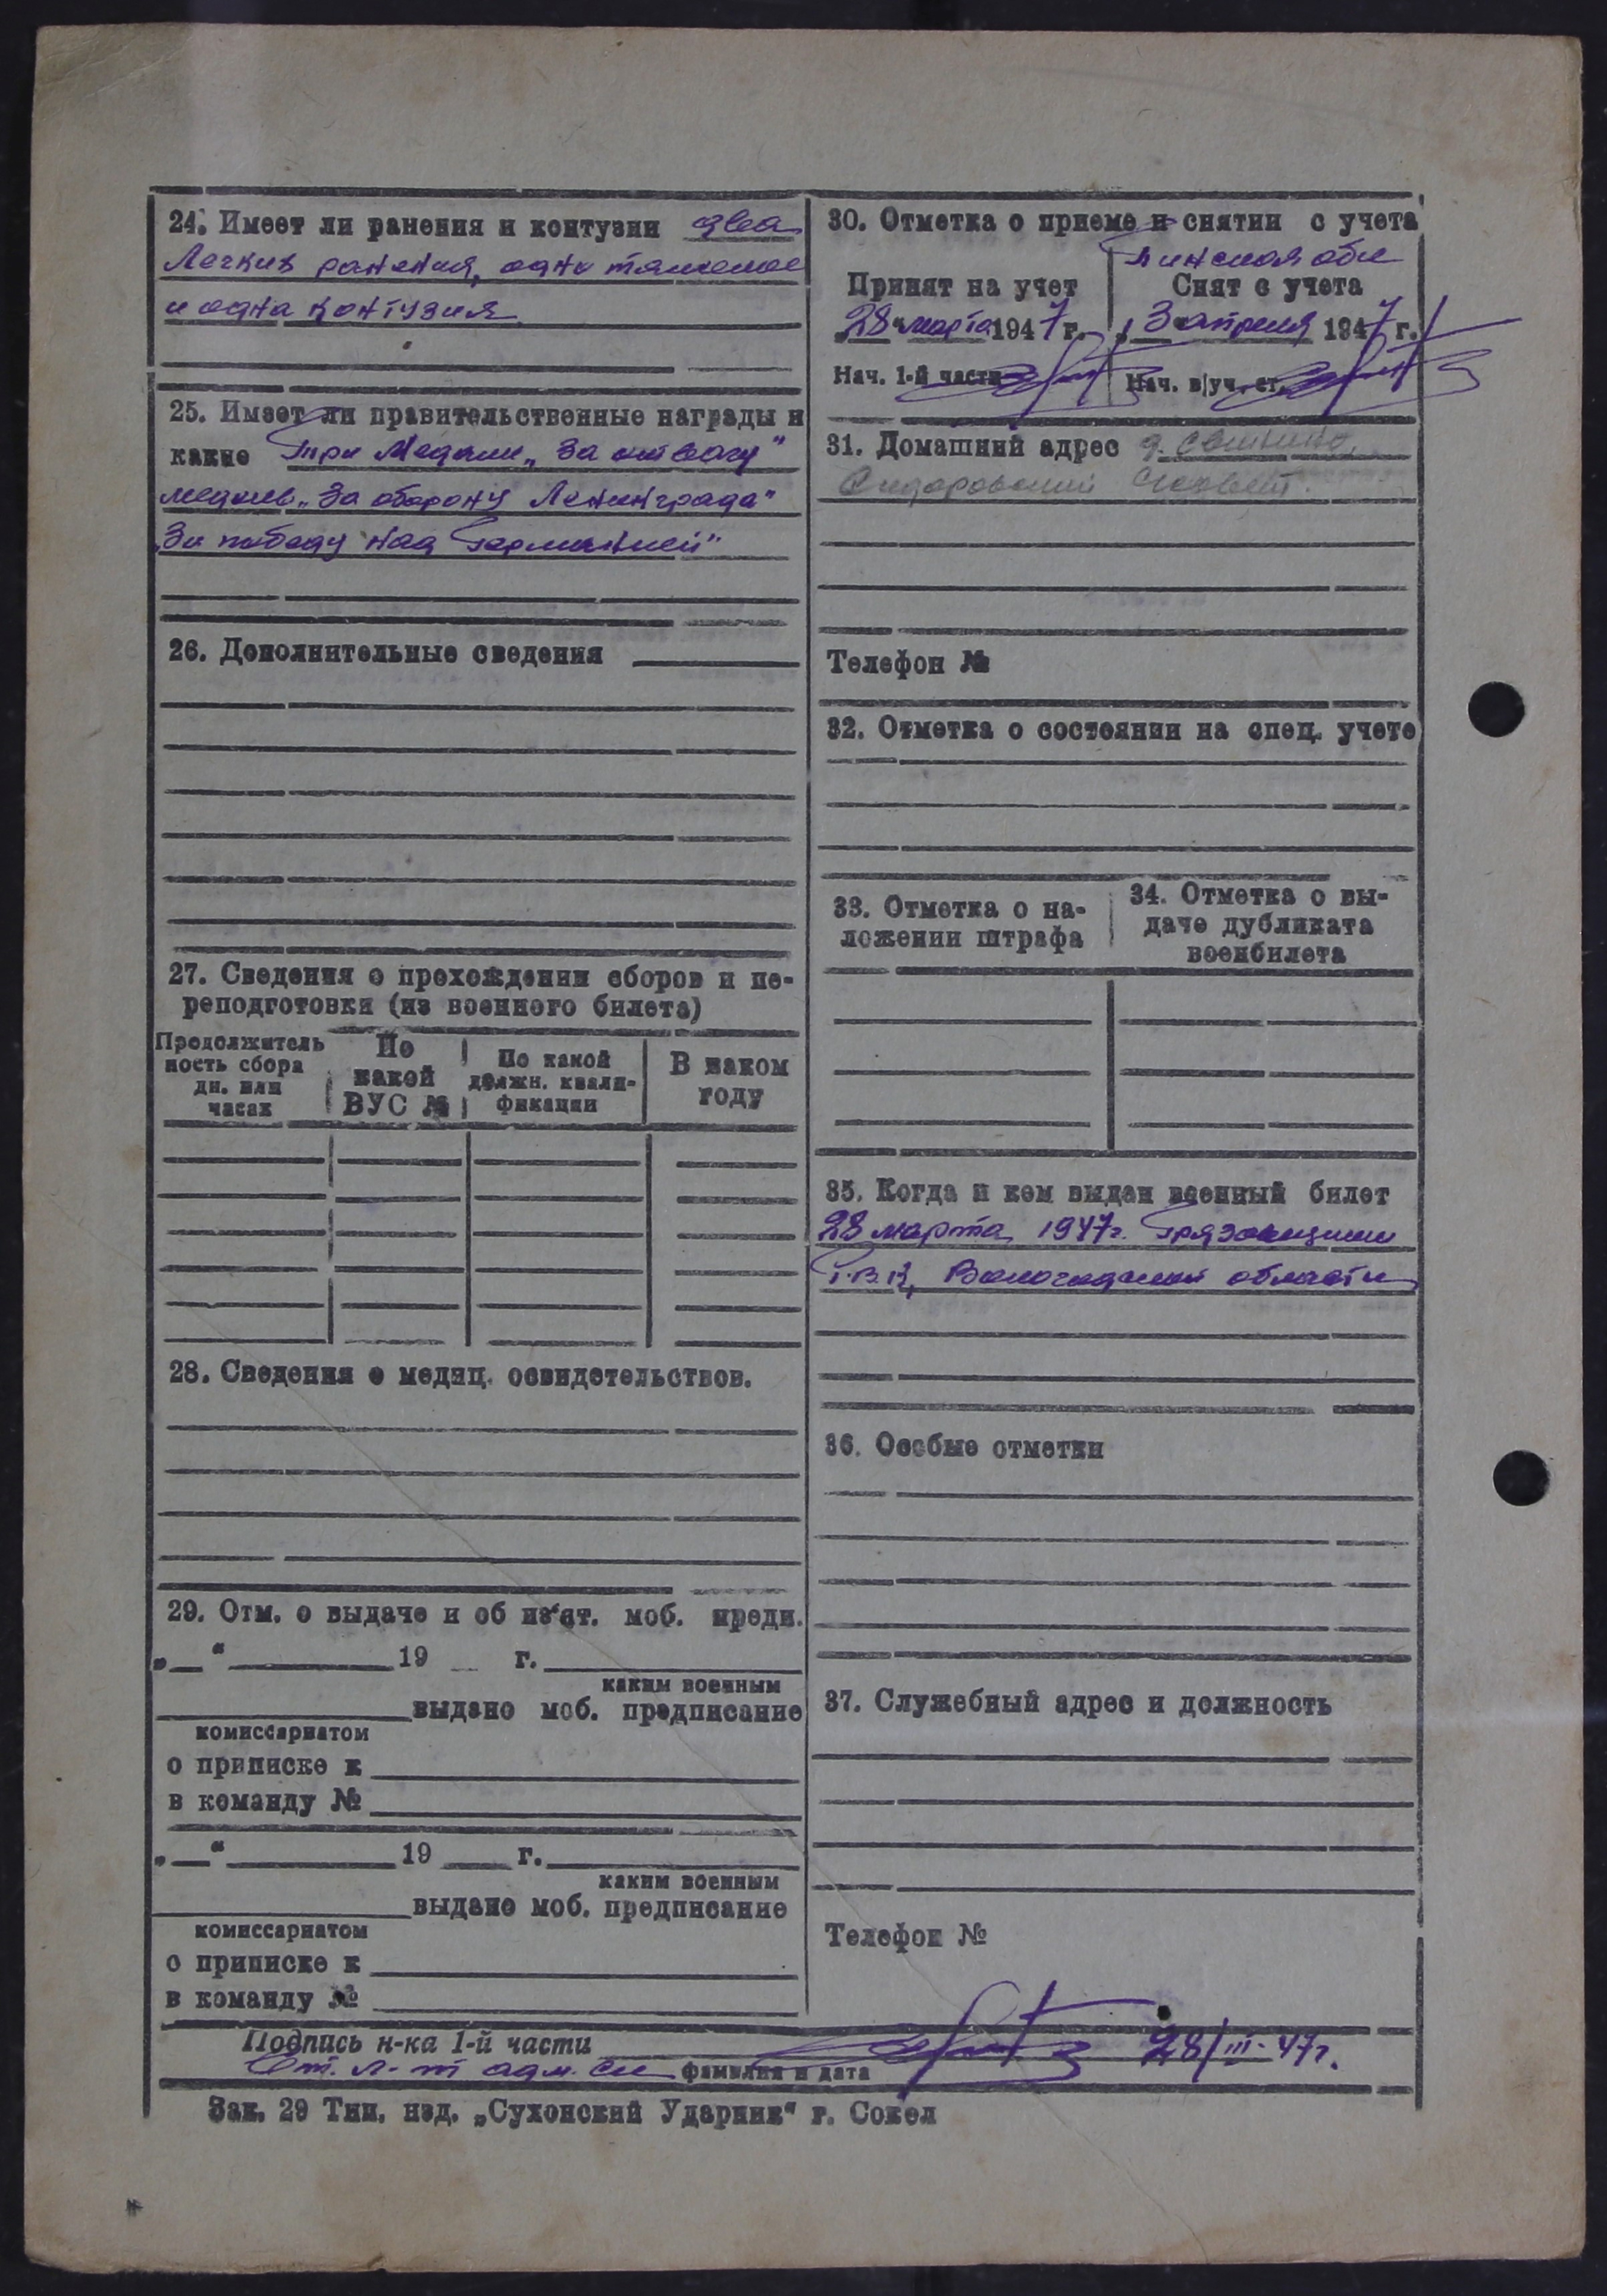 24. Имеет ли ранения и контузии два
Легких ранения, одно тяжелое
и одна контузия
25. Имеет ли правительственные награды и
какие Три Медали „За отвагу"
медаль „За оборону Ленинграда"
„За победу над Германией"
26. Дополнительные сведения
27. Сведения о прохождении сборов и пе-
реподготовки (из военного билета)
Продолжитель
ность сбора
дн. или
часах
По
какой
ВУС №
По какой
должн. квали-
фикации
В каком
году
28. Сведения о медиц. освидетельствов.
29. Отм. о выдаче и об из'ят. моб. предп.
„ " 19 г.
каким военным
выдано моб. предписание
комиссариатом
о приписке к
в команду №
„ " 19 г.
каким военным
выдано моб. предписание
комиссариатом
о приписке к
в команду №
30. Отметка о приеме и снятии с учета
Принят на учет
28 марта 1947 г.
Нач. 1-й части
Пинская обл
Снят с учета
3 апреля 1947 г.
Нач. в/уч. ст.
31. Домашний адрес д.
Сидоровский
Телефон №
32. Отметка о состоянии на спец. учете
33. Отметка о на-
ложении штрафа
34. Отметка о вы-
даче дубликата
военбилета
35. Когда и кем выдан военный билет
28 марта 1947г. Грязовецким
Р.В.К, Вологодской области
36. Особые отметки
37. Служебный адрес и должность
Телефон №
Подпись н-ка 1-й части
Ст. л-т адм. сл фамилия и дата 28/III-47г.
Зак. 29 Тип. изд. „Сухонский Ударник" г. Сокол